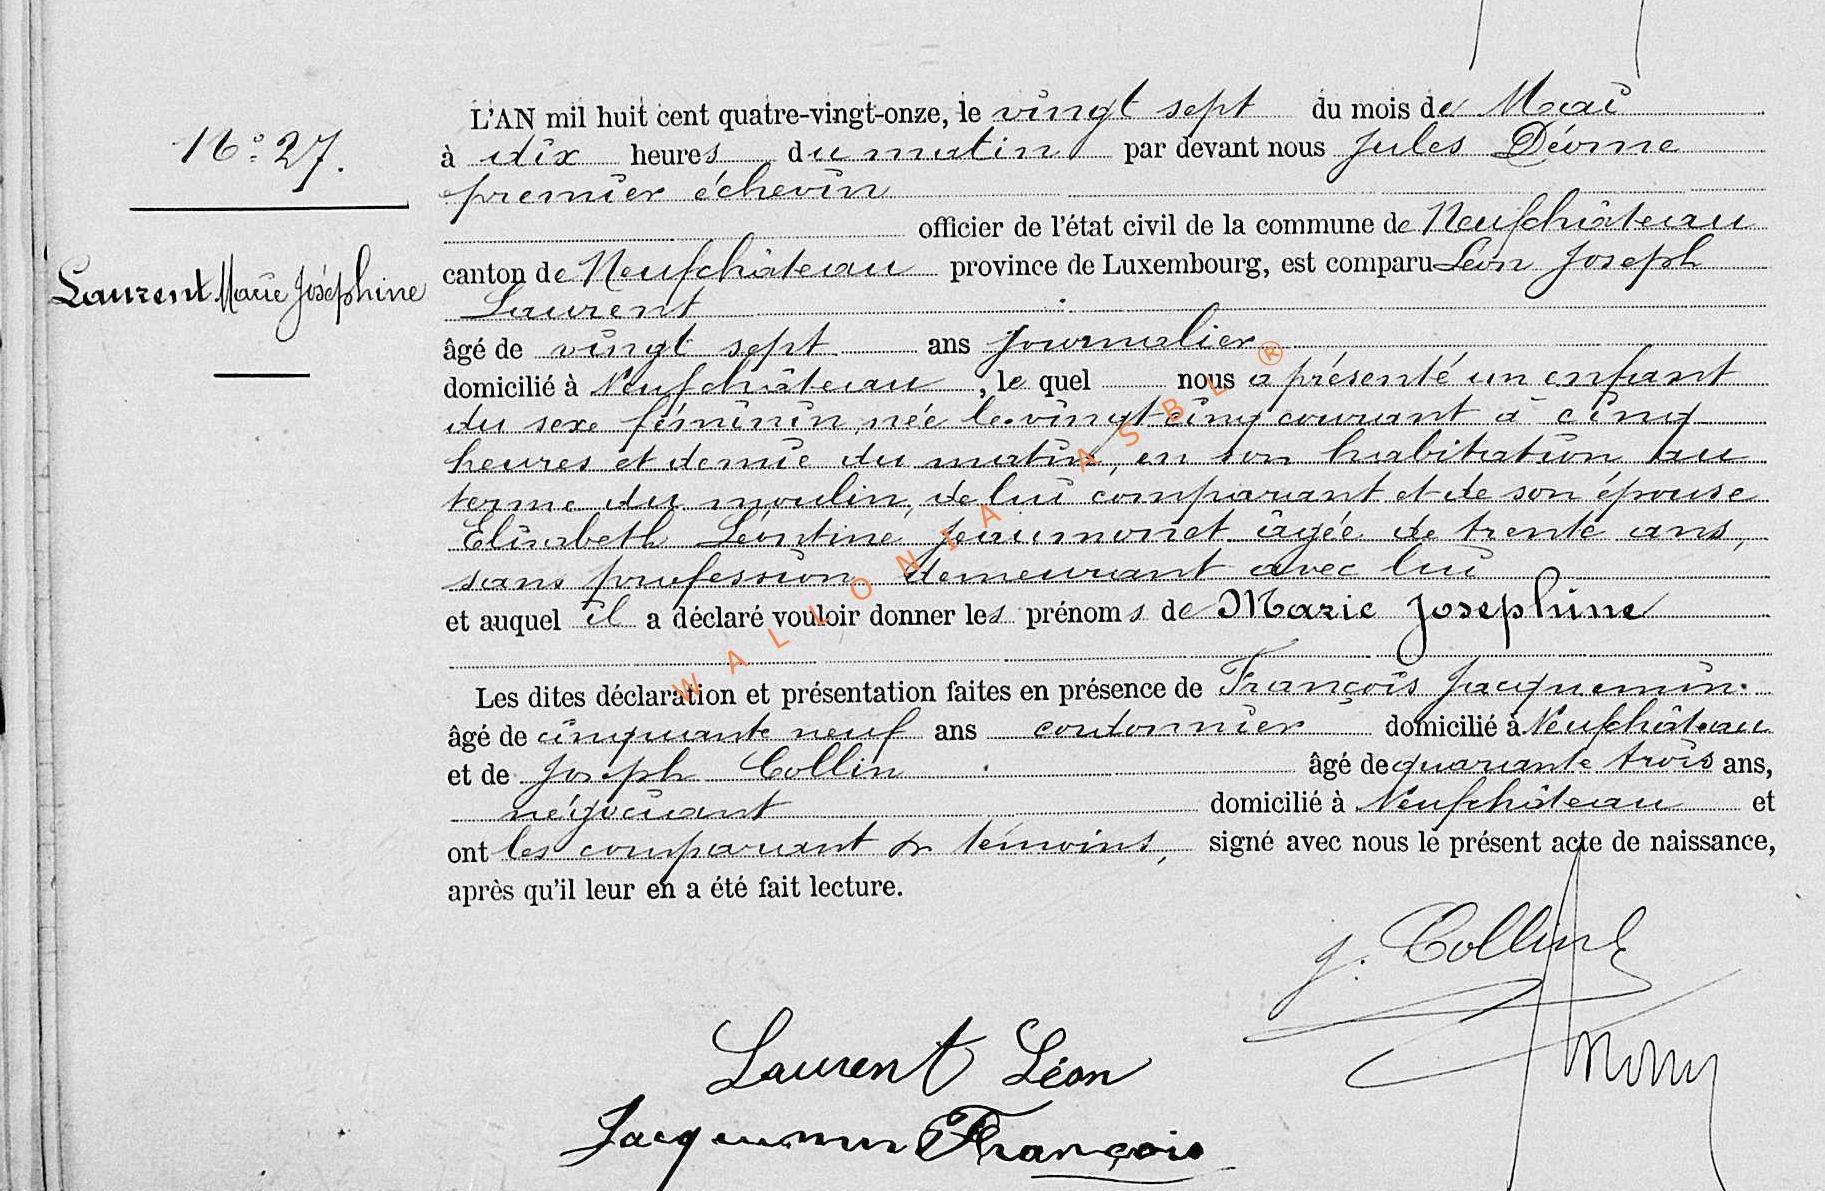 N° 27.
Laurent Marie Joséphine
L'AN mil huit cent quatre-vingt-onze, le vingt sept du mois de Mai
à dix heures du matin par devant nous Jules
premier échevin
officier de l'état civil de la commune de Neufchâteau
canton de Neufchâteau province de Luxembourg, est comparu Léon Joseph
Laurent
âgé de vingt sept ans journalier
domicilié à Neufchâteau, le quel nous a présenté un enfant
du sexe féminin, née le vingt cinq courant à cinq
heures et demie du matin, en son habitation au
terme du moulin, de lui comparant et de son épouse
Elisabeth Léontine âgée de trente ans,
sans profession demeurant avec lui
et auquel il a déclaré vouloir donner les prénoms de Marie Josephine
Les dites déclaration et présentation faites en présence de François Jacquemin
âgé de cinquante neuf ans cordonnier domicilié à Neufchâteau
et de Joseph Collin âgé de quarante trois ans,
négociant domicilié à Neufchâteau et
ont les comparant & témoins, signé avec nous le présent acte de naissance,
après qu'il leur en a été fait lecture.
J. Collin
Laurent Léon
Jacquemin François
WALLONIA ASBL ®